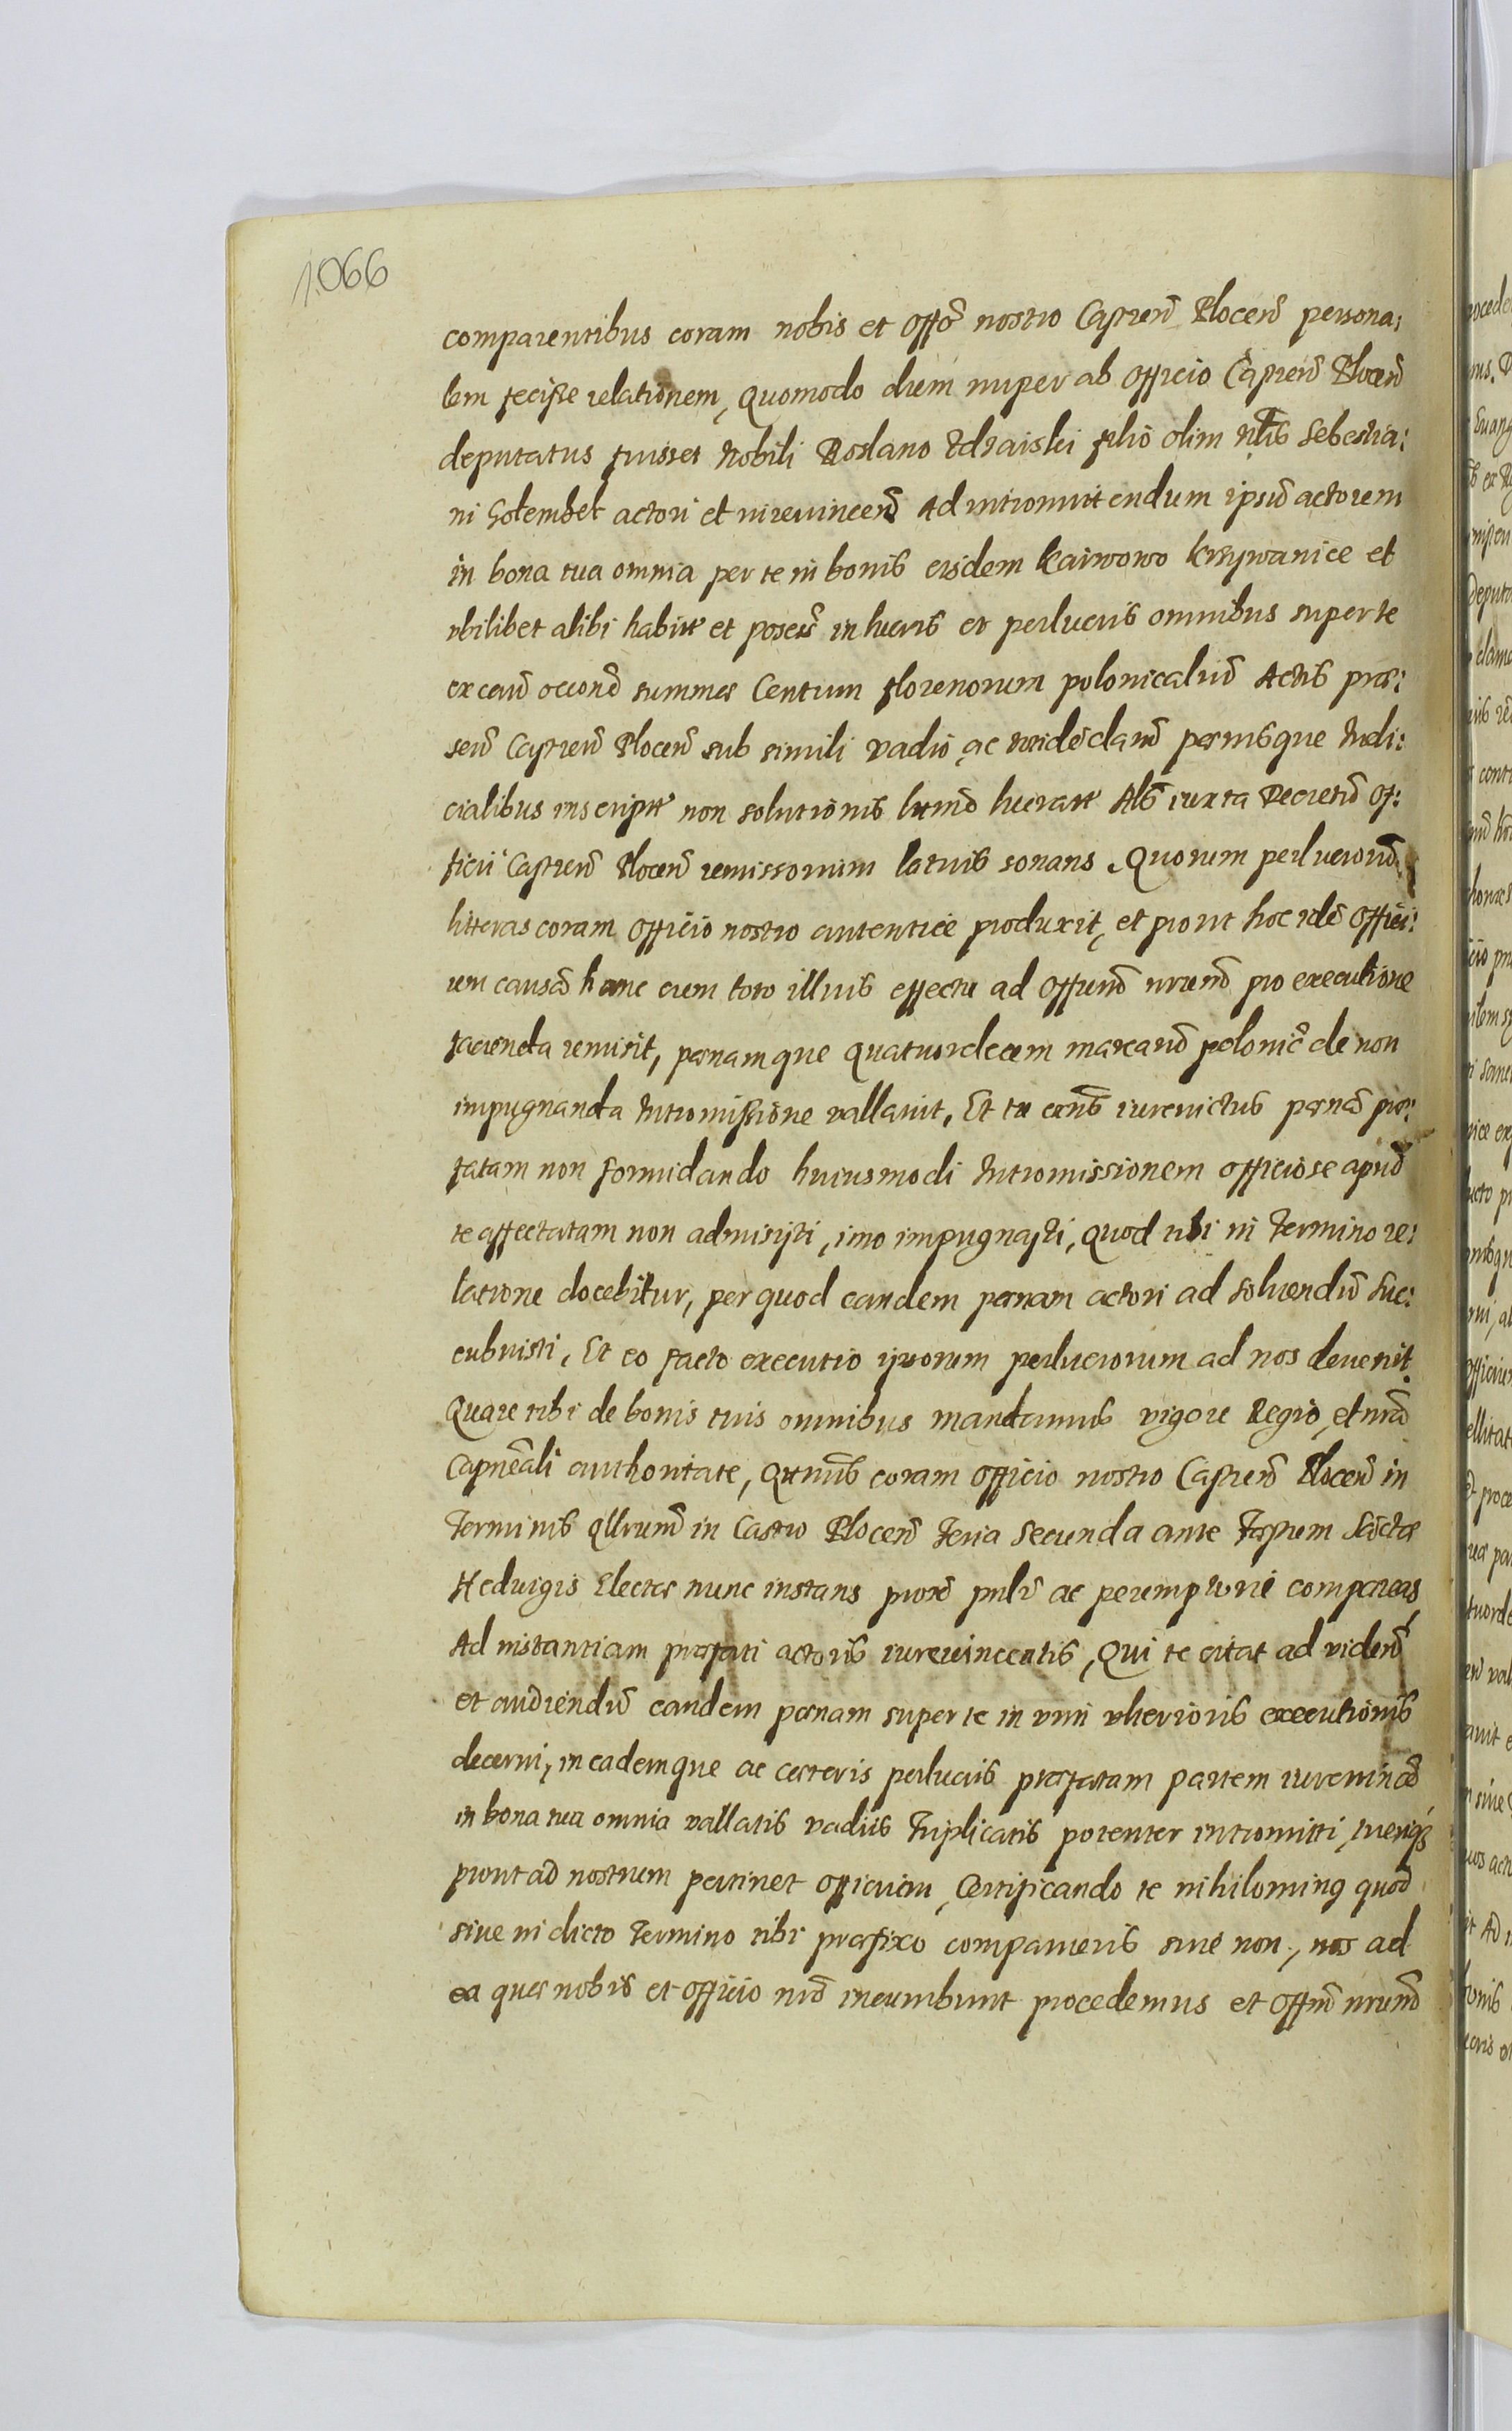 1.066
comparentibus coram nobis et Offõ nostro Castreñ Płoceñ persona:
lem fecisse relationem, Quomodo dum nuper ab Officio Castreñ Płoceñ
deputatus fuisset Nobili Roslano Zdraiski filio olim Nłis Sebestia:
ni Gotembek actori et iurevinceñ Ad intromittendum ipsũ actorem
in bona tua omnia per te in bonis eisdem Karwowo krzywanice et
vbilibet alibi habitt et posess in lucris et perlucris omnibus super te
ex cauõ occonõ summæ Centum florenorum polonicaliũ Actis præ:
señ Castreñ Płoceñ sub simili vadio, ac pænisque Iudi:
cialibus inscriptæ non solutionis lucratt Als iuxta Decretũ Of:
ficii Castreñ Płoceñ remissorium latius sonans. Quorum perlucrorũ
litteras coram Officio nostro autentice produxit, et prout hoc idẽ Offici:
um causã hanc cum toto illius effectu ad Offiuṁ nrum̃ pro executione
facienda remisit, pænamque quatuordecem marcarũ polonic̃ de non
impugnanda Intromissione vallavit, Et tu iurevictus pænã præ:
fatam non formidando huiusmodi Intromissionem officiose apud
te affectatam non admisisti, imo impugnasti, quod tibi in termino re:
latione docebitur, per quod eandem pænam actori ad solvendũ suc:
cubuisti, Et eo facto executio ipsorum perlucrorum ad nos devenit.
Quare tibi de bonis tuis omnibus mandamus vigore Regio, et nrã
Capnẽali authoritate, Qtnus coram Officio nostro Castreñ Płoceñ in
Terminis qllrum̃ in Castro Płoceñ feria Secunda ante festum Sãctæ
Hedvigis Electæ nunc instans pnłr ac peremptorie compareas
Ad instantiam præfati actoris iurevincentis, Qui te citat ad videñ
et audiendũ eandem pænam super te in vim vlterioris executionis
decerni, in eademque ac cæteris perlucris præfatam partem iurevincẽ
in bona tua omnia vallatis vadiis Triplicatis potenter intromitti, tuerique
prout ad nostrum pertinet officium, Certificando te nihilominq quod
sive in dicto termino tibi præfixo comparueris sive non, nos ad
ea quæ nobis et officio nrõ incumbunt procedemus et Offim̃ nrum̃